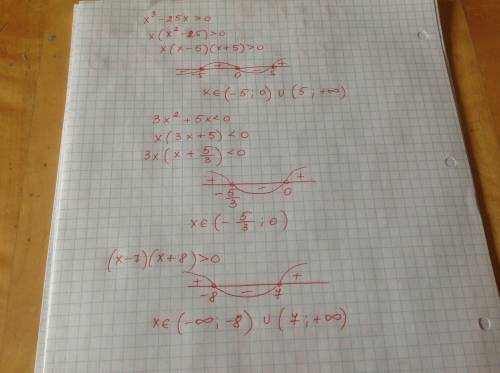 x³ - 25x > 0
x(x² - 25) > 0
x(x-5)(x+5) > 0
- + - +
-5 0 5
x∈(-5; 0) ∪ (5; +∞)
3x² + 5x < 0
x(3x+5) < 0
3x(x + 5/3) < 0
+ - +
-5/3 0
x∈(-5/3; 0)
(x-7)(x+8) > 0
+ - +
-8 7
x∈(-∞; -8) ∪ (7; +∞)